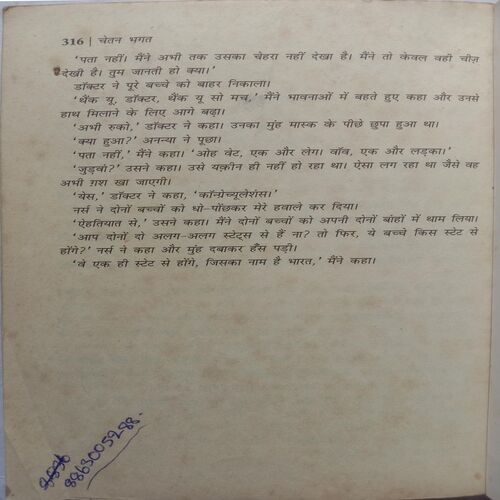 316 | चेतन भगत
'पता नहीं। मैंने अभी तक उसका चेहरा नहीं देखा है। मैंने तो केवल वही चीज़
देखी है। तुम जानती हो क्या।'
डॉक्टर ने पूरे बच्चे को बाहर निकाला।
'थैंक यू, डॉक्टर, थैंक यू सो मच,' मैंने भावनाओं में बहते हुए कहा और उनसे
हाथ मिलाने के लिए आगे बढ़ा।
'अभी रुको,' डॉक्टर ने कहा। उनका मुंह मास्क के पीछे छुपा हुआ था।
'क्या हुआ?' अनन्या ने पूछा।
'पता नहीं,' मैंने कहा। 'ओह वेट, एक और लेग। वॉव, एक और लड़का।'
'जुड़वां?' उसने कहा। उसे यक़ीन ही नहीं हो रहा था। ऐसा लग रहा था जैसे वह
अभी ग़श खा जाएगी।
'येस,' डॉक्टर ने कहा, 'कॉन्ग्रेच्यूलेशंस।'
नर्स ने दोनों बच्चों को धो-पोंछकर मेरे हवाले कर दिया।
'ऐहतियात से,' उसने कहा। मैंने दोनों बच्चों को अपनी दोनों बांहों में थाम लिया।
'आप दोनों दो अलग-अलग स्टेट्स से हैं ना? तो फिर, ये बच्चे किस स्टेट से
होंगे?' नर्स ने कहा और मुंह दबाकर हंस पड़ी।
'वे एक ही स्टेट से होंगे, जिसका नाम है भारत,' मैंने कहा।
8863005288.